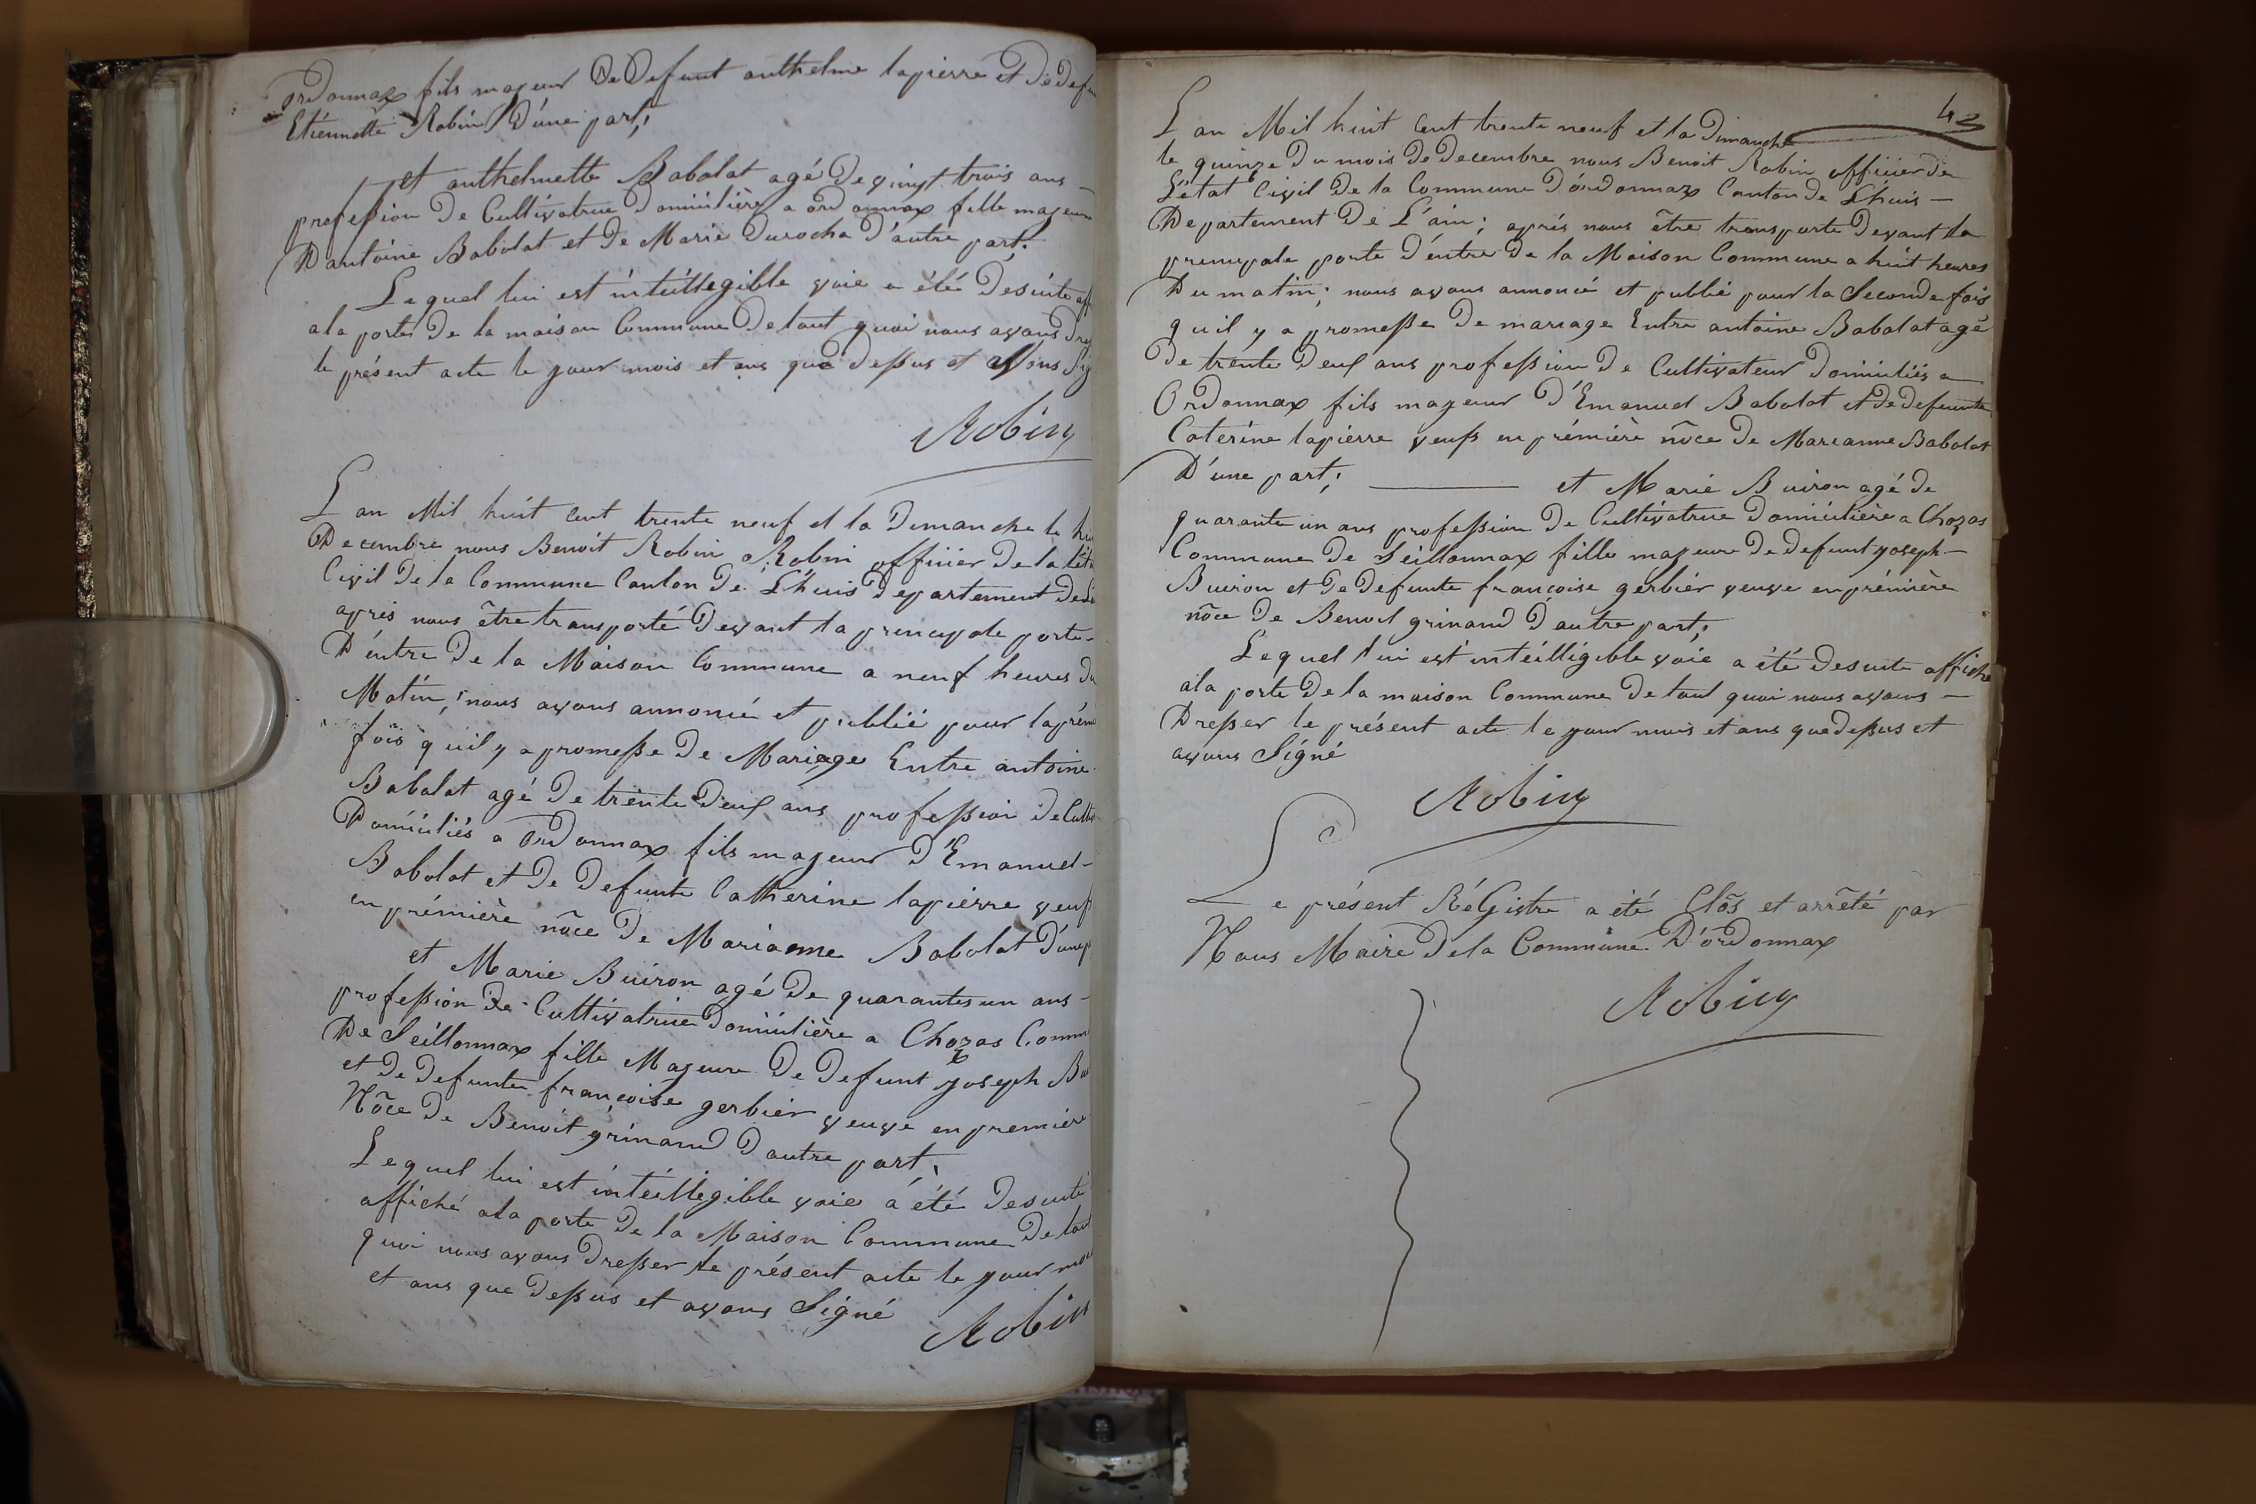 ordonnax fils majeur De Defunt anthelme lapierre et De Defun
Etiennette Robin D'une part;
et anthelmette Babolat agé De vingt trois ans –
profession De Cultivatrice Domiciliére a ordonnax fille majeure
D'antoine Babolat et De Marie Durocha D'autre part;
Lequel lui est intéillegible voie a été Desuite aff
ala porte De la maison Commune De tout quoi nous avons Dres
le présent acte le jour mois et ans que Dessus et avons Sig
Robin
L'an Mil huit Cent trente neuf et la Dimanche le hui
Decembre nous Benoit Robin Robin officier De la l'éta
Civil De la Commune Canton De L'huis Departement De
aprés nous être transporté Devant la principale porte –
D'entre De la Maison Commune a neuf heures Du
Matin; nous avons annoncé et publié pour la prémi
fois qu'il y a promesse De Mariage Entre antoine
Babolat agé De trente Deux ans profession De Culti
Domiciliés a ordonnax fils majeur D'Emanuel –
Babolat et De Defunte Catherine lapierre veuf
en prémière nôce De Marianne Babolat D'une p
et Marie Buiron agé De quarantes un ans –
profession De Cultivatrice Domiciliére a Chozas Comm
De Seillonnax fille Majeure De Defunt joseph Bui
et De Defunte françoise gerbier veuve en premiér
Nôce De Benoit grinand D'autre part;
Lequel lui est intéillegible voie a été Desuite
affiché ala porte De la Maison Commune De tout
quoi nous avons Dresser le présent acte le jour moi
et ans que Dessus et avons Signé
Robin
42
L'an Mil huit Cent trente neuf et la Dimanche
le quinze Du mois De Decembre nous Benoit Robin officier De
L'état Civil De la Commune D'ordonnax Canton De L'huis –
Departement De L'ain; aprés nous être transporte Devant la
principale porte D'entre De la Maison Commune a huit heures
Du matin; nous avons annoncé et publié pour la Seconde fois
qu'il y a promesse De mariage Entre antoine Babolat agé
De trente Deux ans profession De Cultivateur Domiciliés a
Ordonnax fils majeur D'Emanuel Babolat et De defunte
Caterine lapierre veuf en prémière nôce De Marianne Babolat
D'une part; et Marie Buiron agé De
quarante un ans profession De Cultivatrice Domiciliére a Chozas
Commune De Seillonnax fille majeure De defunt joseph –
Buiron et De Defunte françoise gerbier veuve en prémière
nôce De Benoit grinand D'autre part;
Lequel lui est intéilligible voie a été Desuite affiché
ala porte De la maison Commune De tout quoi nous avons –
Dresser le présent acte le jour mois et ans que Dessus et
avons Signé
Robin
Le présent RéGistre a été Clôs et arrêté par
Nous Maire De la Commune D'ordonnax
Robin